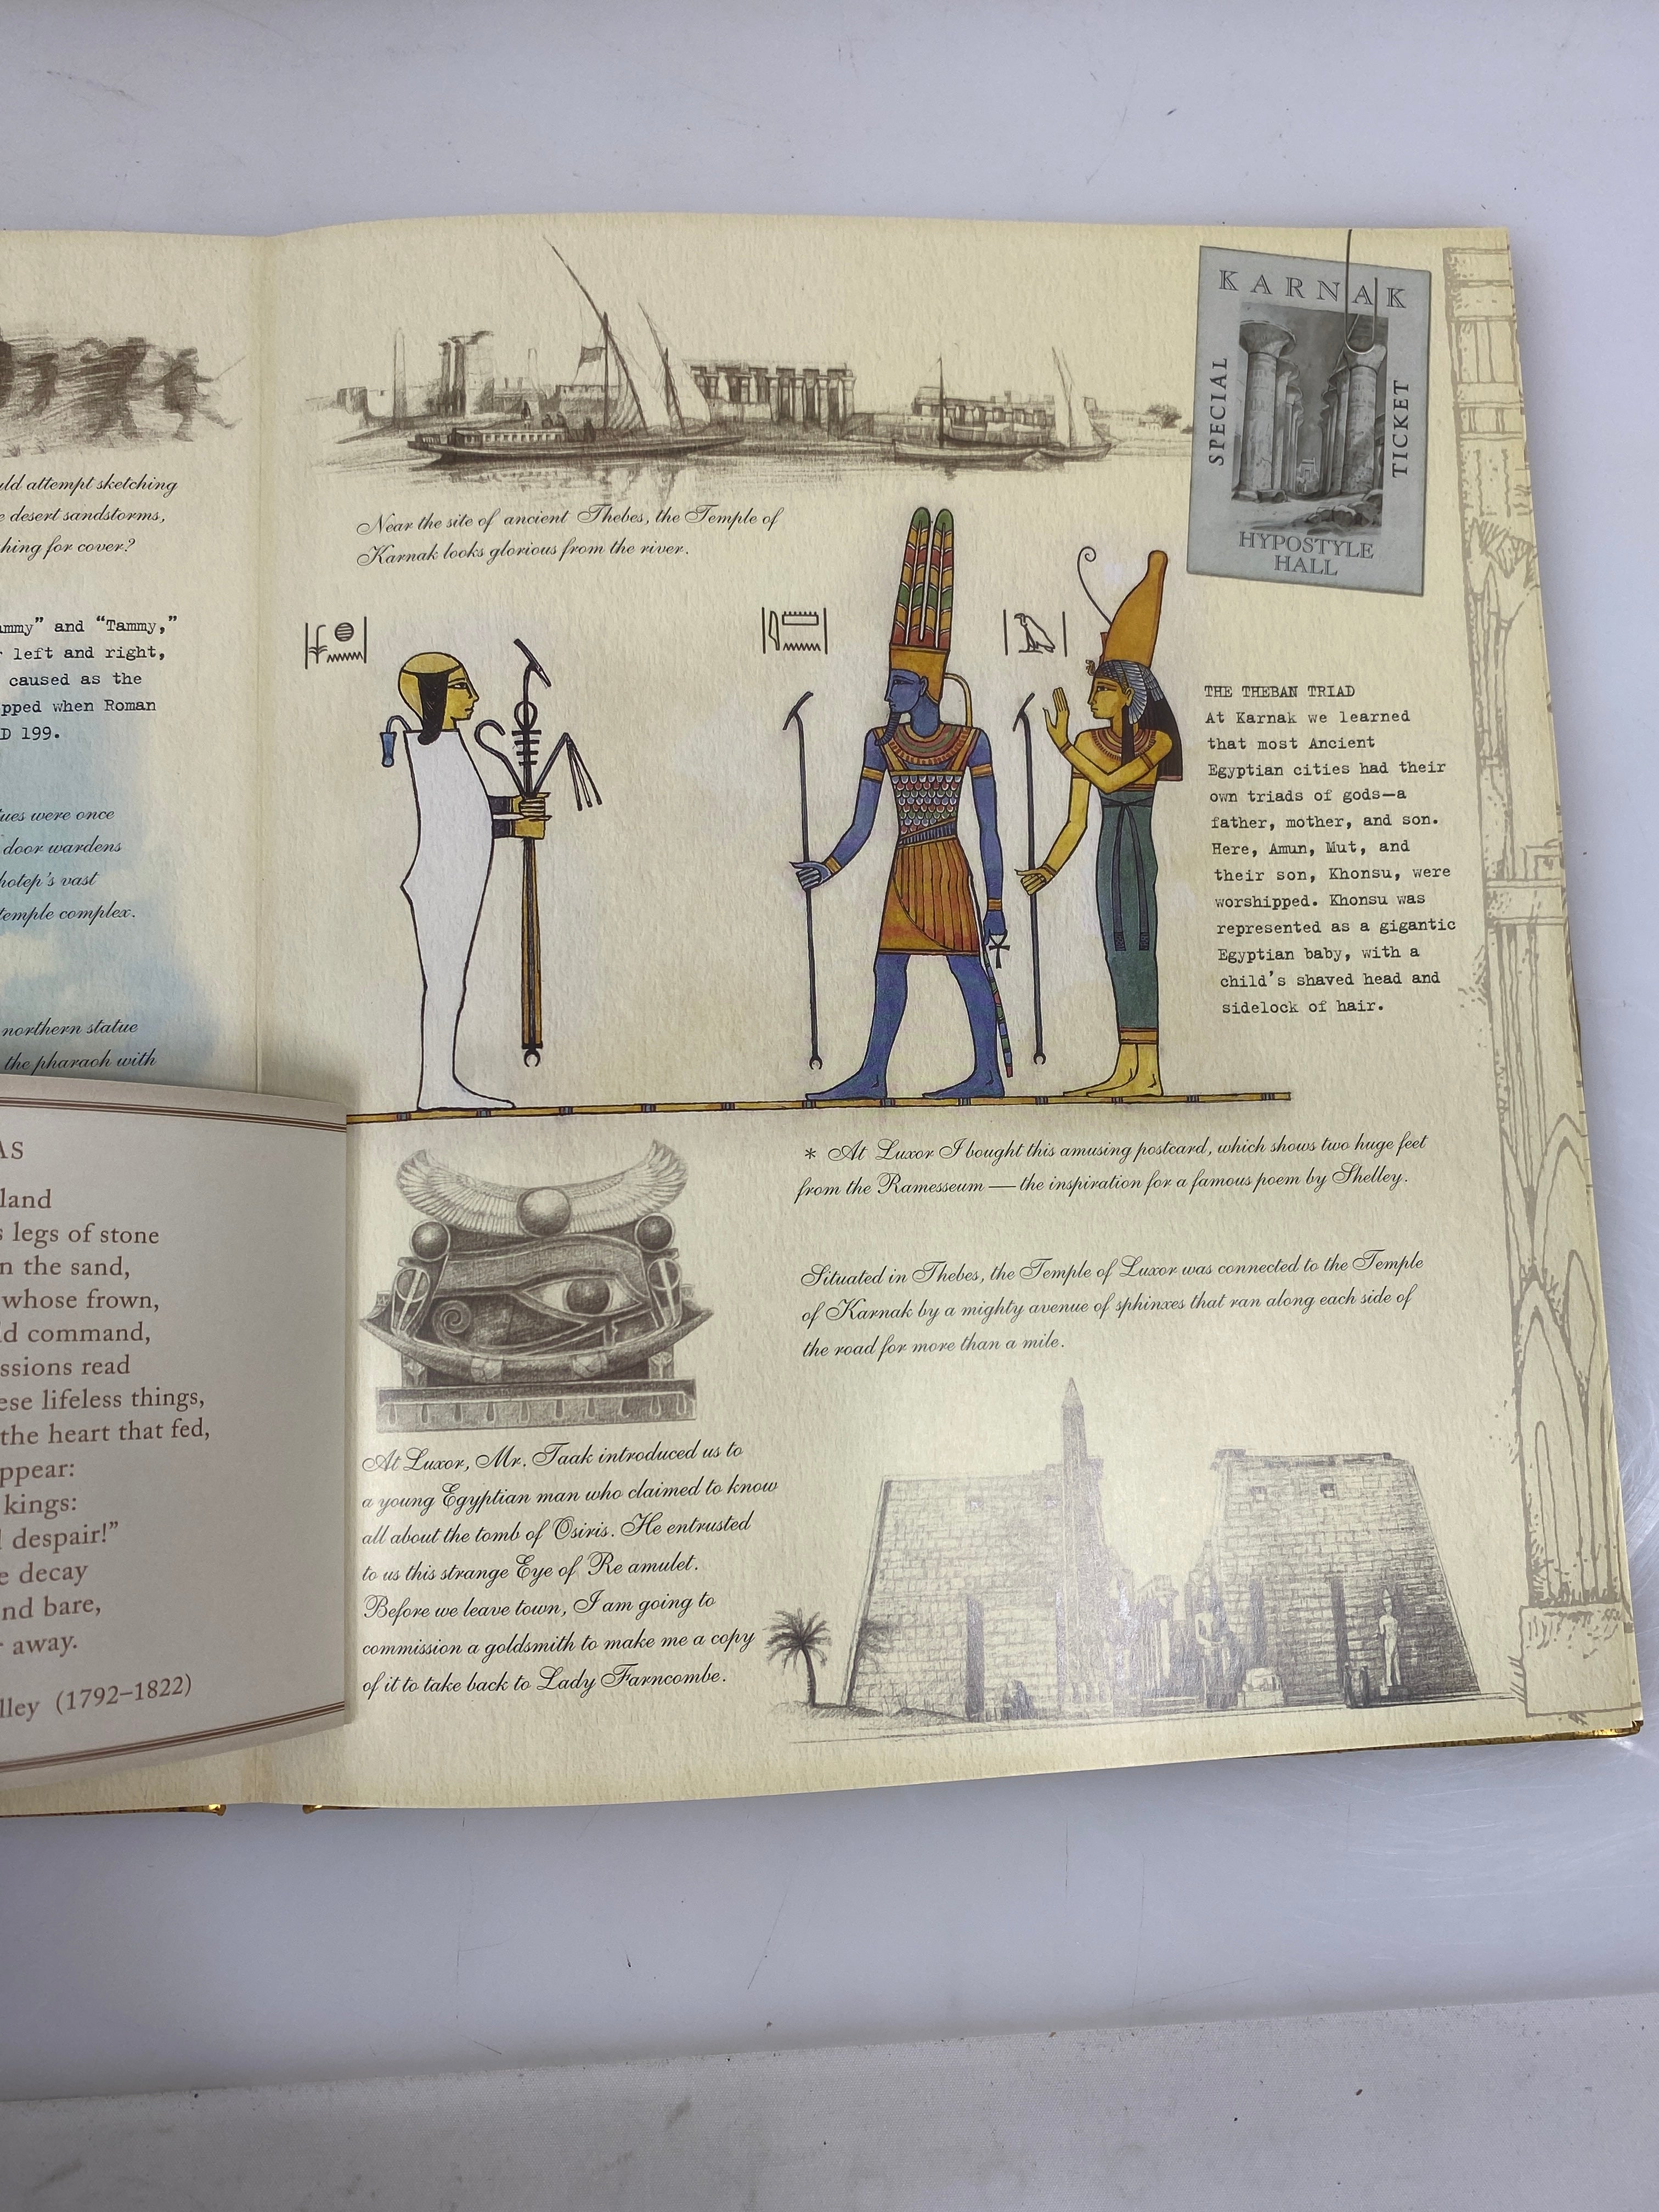 uld attempt sketching
e desert sandstorms,
hing for cover?
ammy” and “Tammy,”
r left and right,
caused as the
pped when Roman
D 199.
ues were once
door wardens
hotep's vast
temple complex.
northern statue
the pharaoh with
AS
land
s legs of stone
n the sand,
whose frown,
d command,
ssions read
ese lifeless things,
the heart that fed,
ppear:
kings:
d despair!”
e decay
nd bare,
r away.
lley (1792–1822)
KARNAK
SPECIAL
TICKET
HYPOSTYLE
HALL
Near the site of ancient Thebes, the Temple of
Karnak looks glorious from the river.
THE THEBAN TRIAD
At Karnak we learned
that most Ancient
Egyptian cities had their
own triads of gods—a
father, mother, and son.
Here, Amun, Mut, and
their son, Khonsu, were
worshipped. Khonsu was
represented as a gigantic
Egyptian baby, with a
child's shaved head and
sidelock of hair.
* At Luxor I bought this amusing postcard, which shows two huge feet
from the Ramesseum — the inspiration for a famous poem by Shelley.
Situated in Thebes, the Temple of Luxor was connected to the Temple
of Karnak by a mighty avenue of sphinxes that ran along each side of
the road for more than a mile.
At Luxor, Mr. Taak introduced us to
a young Egyptian man who claimed to know
all about the tomb of Osiris. He entrusted
to us this strange Eye of Re amulet.
Before we leave town, I am going to
commission a goldsmith to make me a copy
of it to take back to Lady Farncombe.